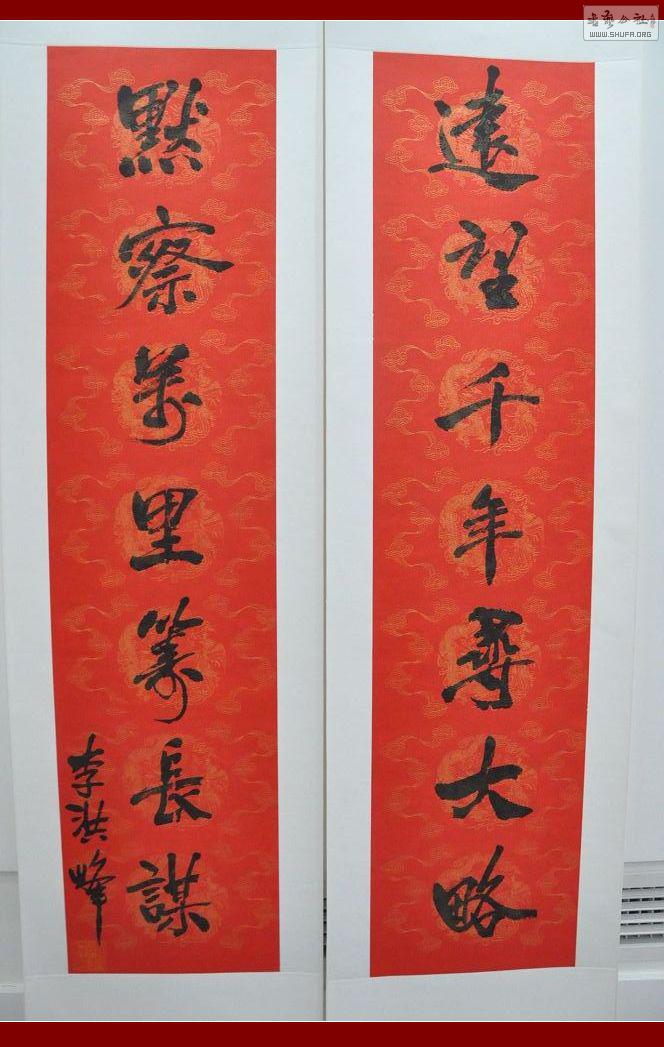 遠望千年尋大略
默察萬里籌長謀
李洪峰
WWW.SHUFA.ORG